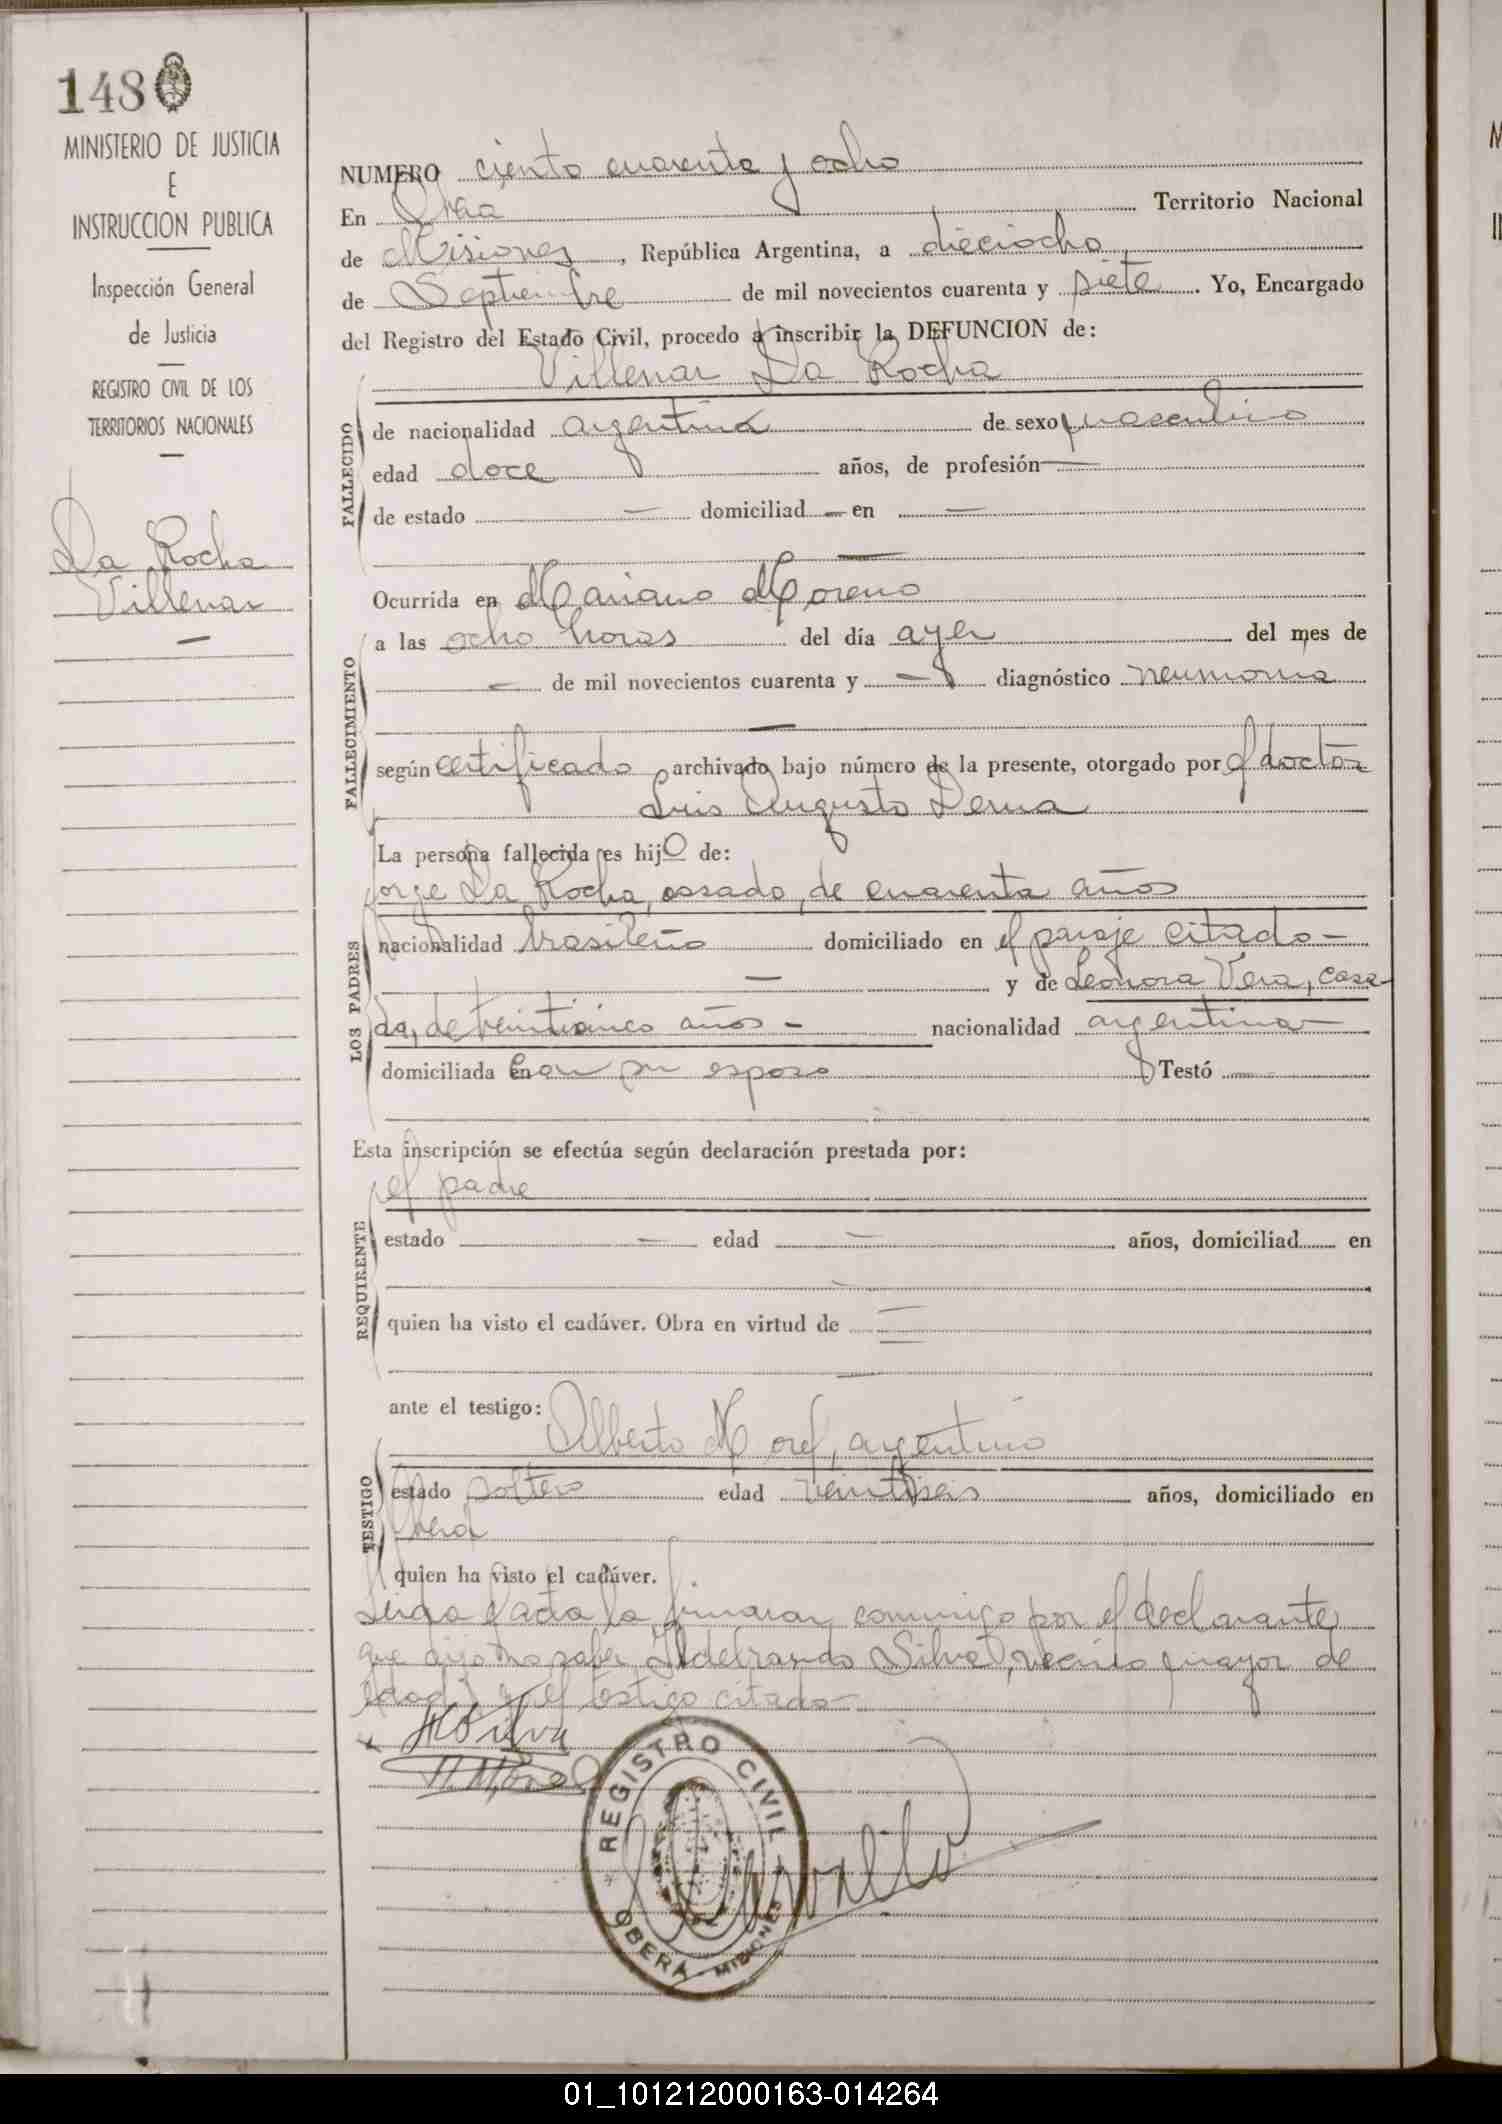 148
MINISTERIO DE JUSTICIA
E
INSTRUCCION PUBLICA
Inspección General
de Justicia
REGISTRO CIVIL DE LOS
TERRITORIOS NACIONALES
La Rocha
Villenar
NUMERO ciento cuarenta y ocho
En Territorio Nacional
de Misiones, República Argentina, a dieciocho
de Septiembre de mil novecientos cuarenta y siete. Yo, Encargado
del Registro del Estado Civil, procedo a inscribir la DEFUNCION de:
Villenar La Rocha
FALLECIDO
de nacionalidad argentina de sexo masculino
edad doce años, de profesión —
de estado — domiciliad — en —
—
Ocurrida en Mariano Moreno
FALLECIMIENTO
a las ocho horas del día ayer del mes de
— de mil novecientos cuarenta y — diagnóstico neumonia
—
según certificado archivado bajo número de la presente, otorgado por el doctor
Luis Augusto
La persona fallecida es hijo de:
LOS PADRES
Jorge La Rocha, casado, de cuarenta años
nacionalidad brasileño domiciliado en el paraje citado —
— y de Leonora Vera, casa-
da, de veinticinco años — nacionalidad argentina —
domiciliada en con su esposo Testó —
Esta inscripción se efectúa según declaración prestada por:
REQUIRENTE
el padre
estado — edad — años, domiciliad en
quien ha visto el cadáver. Obra en virtud de —
—
ante el testigo:
TESTIGO
Alberto Morel, argentino
estado soltero edad veintiseis años, domiciliado en
Oberá
quien ha visto el cadáver.
Leida el acta la firmaron conmigo por el declarante
que dijo no saber Ildebrando Silva, vecino mayor de
edad y el testigo citado —
HSilva
REGISTRO CIVIL
OBERA - MISIONES
01_101212000163-014264